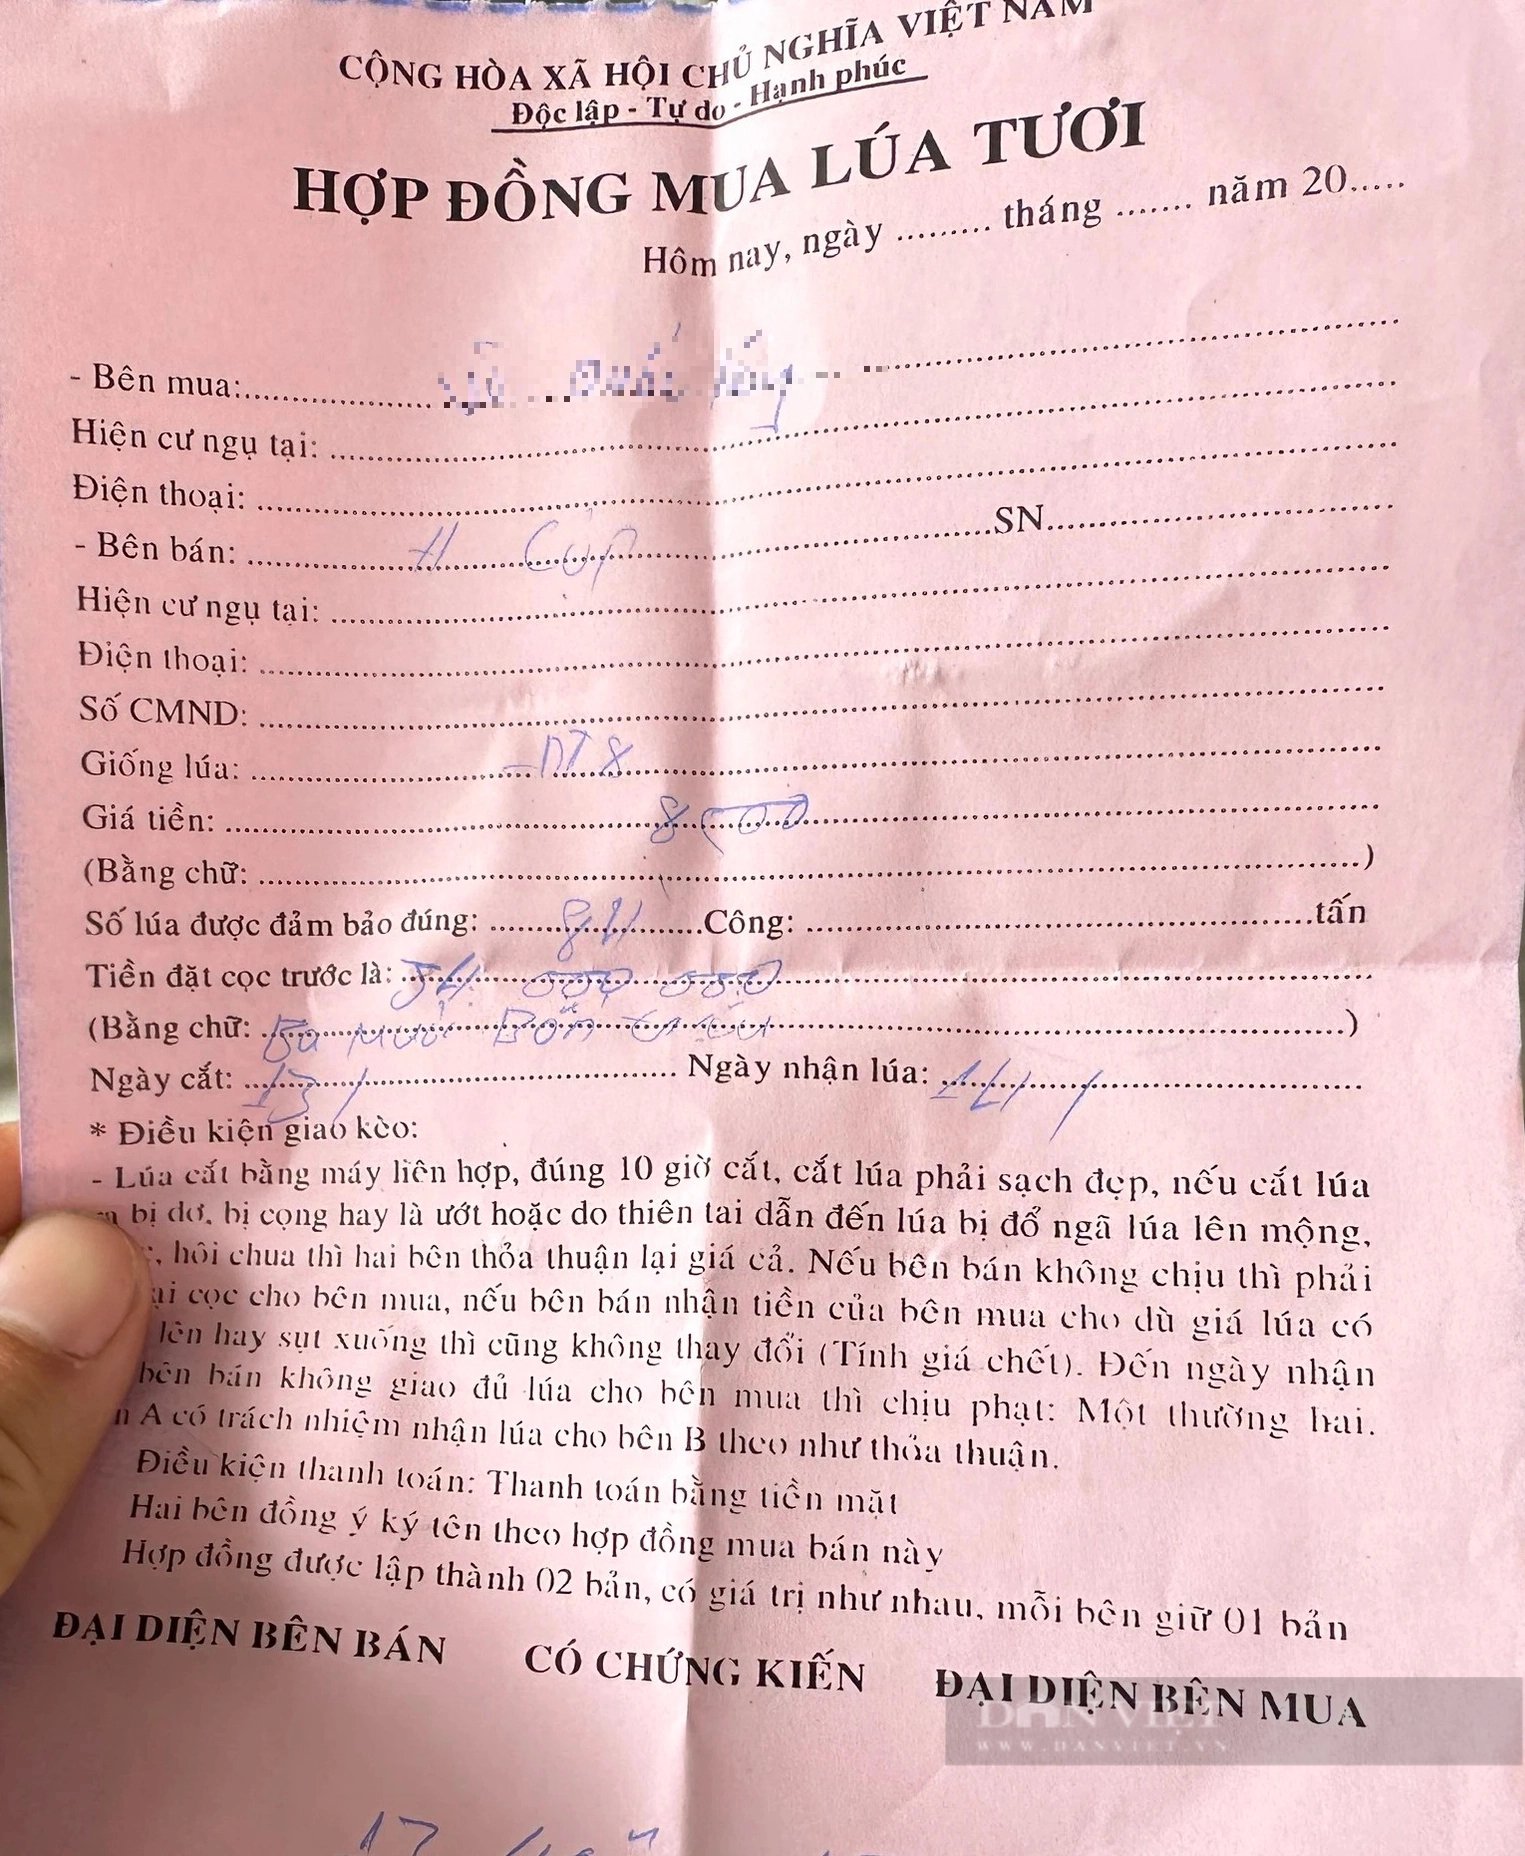 CỘNG HÒA XÃ HỘI CHỦ NGHĨA VIỆT NAM
Độc lập - Tự do - Hạnh phúc
HỢP ĐỒNG MUA LÚA TƯƠI
Hôm nay, ngày ......... tháng ....... năm 20.....
- Bên mua:
Hiện cư ngụ tại:
Điện thoại:
- Bên bán: SN
Hiện cư ngụ tại:
Điện thoại:
Số CMND:
Giống lúa: ĐT8
Giá tiền:
(Bằng chữ: )
Số lúa được đảm bảo đúng: Công: tấn
Tiền đặt cọc trước là: 34 000 000
(Bằng chữ: Ba mươi Bốn triệu )
Ngày cắt: 13/ Ngày nhận lúa: 14/
* Điều kiện giao kèo:
- Lúa cắt bằng máy liên hợp, đúng 10 giờ cắt, cắt lúa phải sạch đẹp, nếu cắt lúa
bị dơ, bị cọng hay là ướt hoặc do thiên tai dẫn đến lúa bị đổ ngã lúa lên mộng,
hôi chua thì hai bên thỏa thuận lại giá cả. Nếu bên bán không chịu thì phải
cọc cho bên mua, nếu bên bán nhận tiền của bên mua cho dù giá lúa có
lên hay sụt xuống thì cũng không thay đổi (Tính giá chết). Đến ngày nhận
bên bán không giao đủ lúa cho bên mua thì chịu phạt: Một thường hai.
A có trách nhiệm nhận lúa cho bên B theo như thỏa thuận.
Điều kiện thanh toán: Thanh toán bằng tiền mặt
Hai bên đồng ý ký tên theo hợp đồng mua bán này
Hợp đồng được lập thành 02 bản, có giá trị như nhau, mỗi bên giữ 01 bản
ĐẠI DIỆN BÊN BÁN CÓ CHỨNG KIẾN ĐẠI DIỆN BÊN MUA
DANVIỆT
WWW.DANVIET.VN